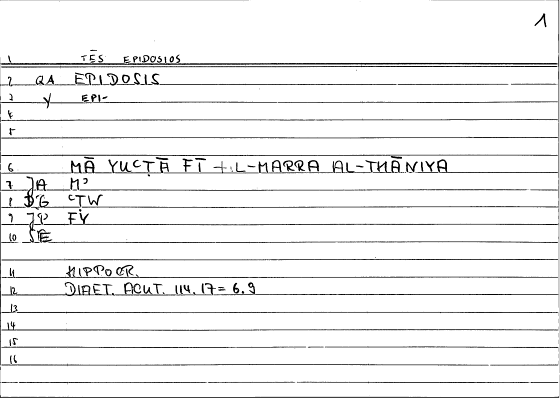 1
1 TĒS EPIDOSIOS
2 QA EPIDOSIS
3 Y EPI-
4
5
6 MĀ YUʿṬĀ FĪ L-MARRA AL-THĀNIYA
7 JA Mʾ
8 DG ʿṬW
9 JP FY
10 SE
11 HIPPOCR.
12 DIAET. ACUT. 114.17 = 6.9
13
14
15
16